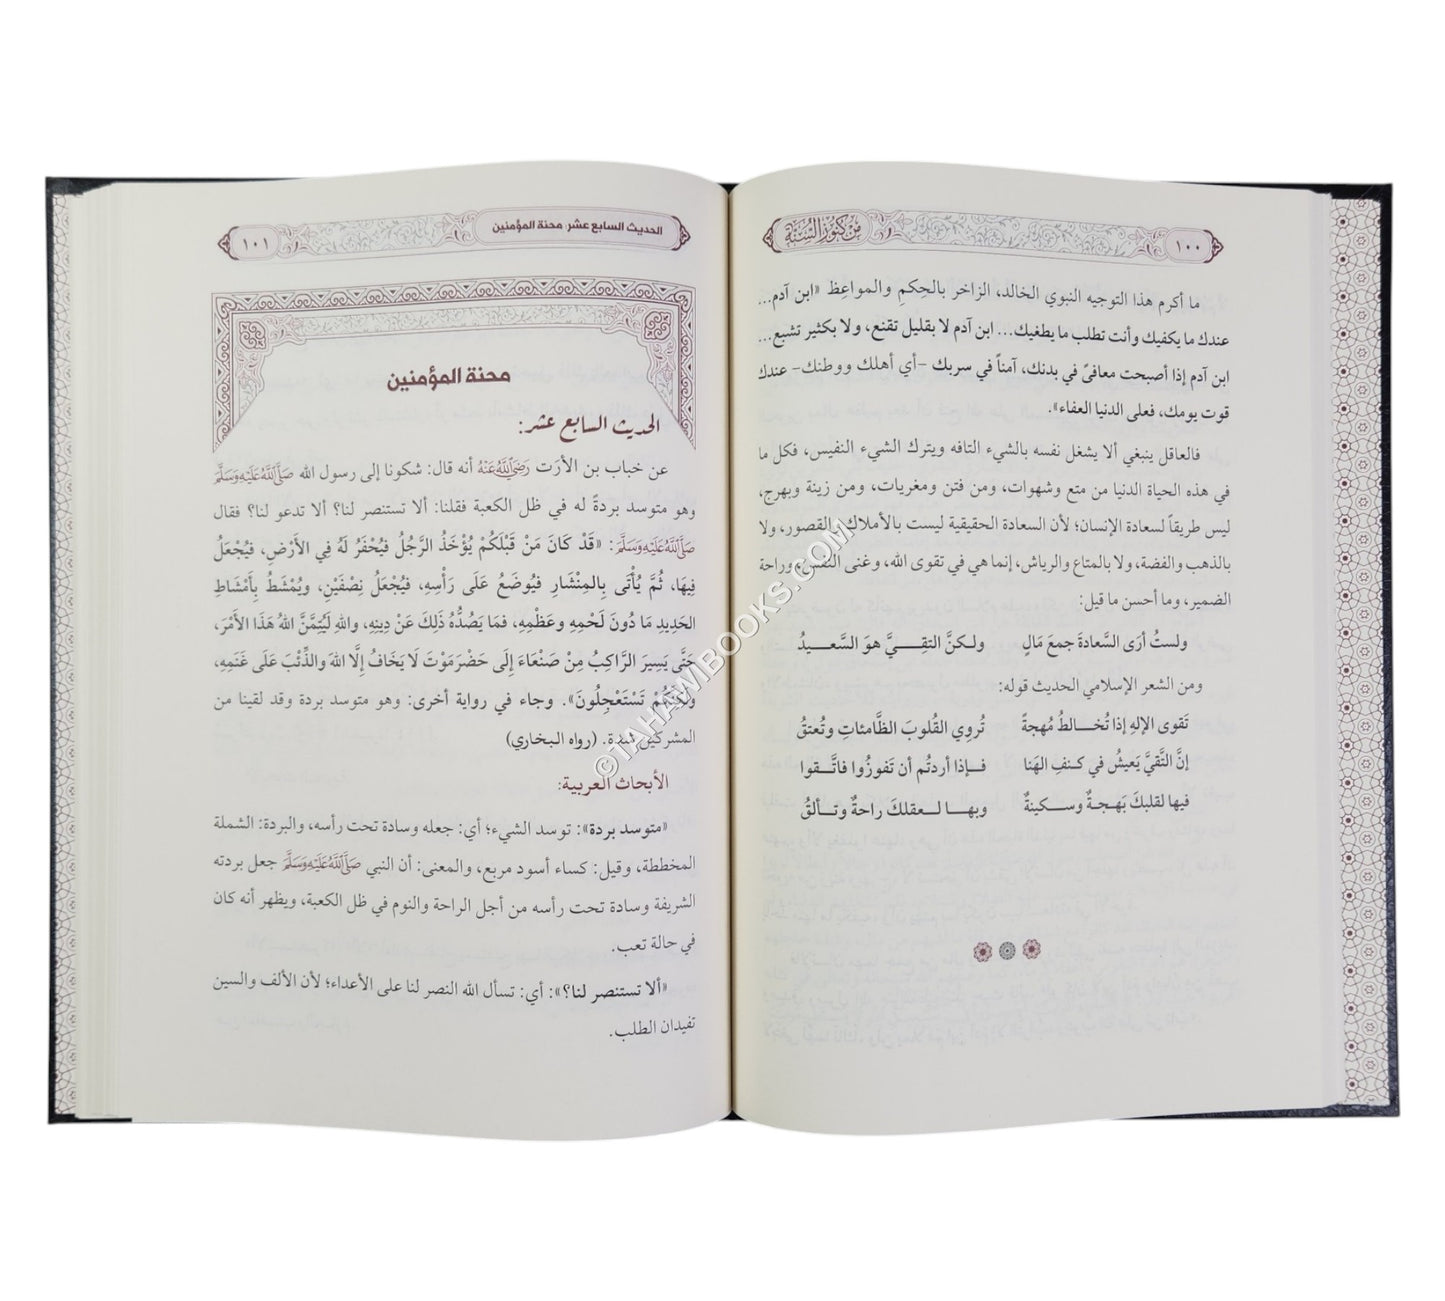 من كنوز السُّنَّة
١٠٠
ما أكرم هذا التوجيه النبوي الخالد، الزاخر بالحِكمِ والمواعِظ «ابن آدم...
عندك ما يكفيك وأنت تطلب ما يطغيك... ابن آدم لا بقليل تقنع، ولا بكثير تشبع...
ابن آدم إذا أصبحت معافىً في بدنك، آمناً في سربك -أي أهلك ووطنك- عندك
قوت يومك، فعلى الدنيا العفاء».
فالعاقل ينبغي ألا يشغل نفسه بالشيء التافه ويترك الشيء النفيس، فكل ما
في هذه الحياة الدنيا من متع وشهوات، ومن فتن ومغريات، ومن زينة وبهرج،
ليس طريقاً لسعادة الإنسان؛ لأن السعادة الحقيقية ليست بالأملاك والقصور، ولا
بالذهب والفضة، ولا بالمتاع والرياش، إنما هي في تقوى الله، وغنى النفس، وراحة
الضمير، وما أحسن ما قيل:
ولستُ أرَى السَّعادةَ جمعَ مَالٍ ولـكنَّ التقِــيَّ هوَ السَّعــــيدُ
ومن الشعر الإسلامي الحديث قوله:
تَقوى الإلهِ إذا تُخـــالطُ مُهجةً تُروِي القُلوبَ الظَّامئاتِ وتُعتقُ
إنَّ التَّقيَّ يَعيشُ في كـنفِ الهَنا فــإذا أردتُم أن تَفوزُوا فاتَّــقوا
فيها لقلبكَ بَهجـةٌ وســكينةٌ وبهـــا لــعقلكَ راحةٌ وتــألقُ
الحديث السابع عشر: محنة المؤمنين
١٠١
محنة المؤمنين
الحديث السابع عشر:
عن خباب بن الأرَت رَضِيَ اللَّهُ عَنْهُ أنه قال: شكونا إلى رسول الله صَلَّى اللَّهُ عَلَيْهِ وَسَلَّمَ
وهو متوسد بردةً له في ظل الكعبة فقلنا: ألا تستنصر لنا؟ ألا تدعو لنا؟ فقال
صَلَّى اللَّهُ عَلَيْهِ وَسَلَّمَ: «قَدْ كَانَ مَنْ قَبْلَكُمْ يُؤْخَذُ الرَّجُلُ فيُحْفَرُ لَهُ فِي الأَرْضِ، فَيُجْعَلُ
فِيهَا، ثُمَّ يُأْتَى بِالمِنْشَارِ فيُوضَعُ عَلَى رَأْسِهِ، فَيُجْعَلُ نِصْفَيْنِ، ويُمْشَطُ بِأَمْشَاطِ
الحَدِيدِ مَا دُونَ لَحْمِهِ وعَظْمِهِ، فمَا يَصُدُّهُ ذَلِكَ عَنْ دِينِهِ، واللهِ لَيُتِمَّنَّ اللهُ هَذَا الأَمْرَ،
حَتَّى يَسِيرَ الرَّاكِبُ مِنْ صَنْعَاءَ إِلَى حَضْرَمَوْتَ لَا يَخَافُ إِلَّا اللهَ والذِّئْبَ عَلَى غَنَمِهِ،
ولَكِنَّكُمْ تَسْتَعْجِلُونَ». وجاء في رواية أخرى: وهو متوسد بردة وقد لقينا من
المشركين شدة. (رواه البخاري)
الأبحاث العربية:
«متوسد بردة»: توسد الشيء؛ أي: جعله وسادة تحت رأسه، والبردة: الشملة
المخططة، وقيل: كساء أسود مربع، والمعنى: أن النبي صَلَّى اللَّهُ عَلَيْهِ وَسَلَّمَ جعل بردته
الشريفة وسادة تحت رأسه من أجل الراحة والنوم في ظل الكعبة، ويظهر أنه كان
في حالة تعب.
«ألا تستنصر لنا؟»: أي: تسأل الله النصر لنا على الأعداء؛ لأن الألف والسين
تفيدان الطلب.
©TAHAWIBOOKS.COM